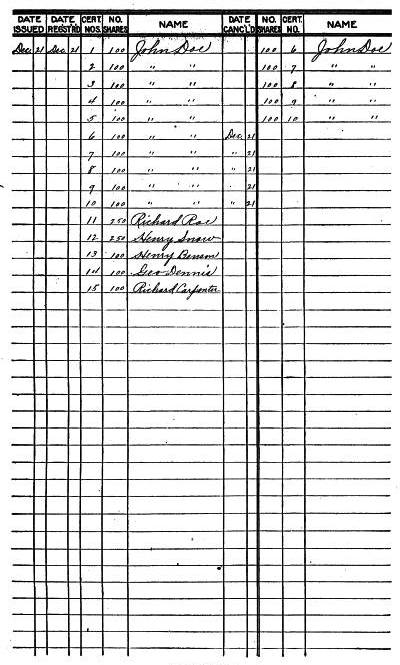 DATE ISSUED DATE REGST'RD CERT. NOS. NO. SHARES NAME DATE CANC'L'D NO. SHARES CERT. NO. NAME
Dec 21 Dec 21 1 100 John Doe 100 6 John Doe
2 100 " " 100 7 " "
3 100 " " 100 8 " "
4 100 " " 100 9 " "
5 100 " " 100 10 " "
6 100 " " Dec 21
7 100 " " " 21
8 100 " " " 21
9 100 " " " 21
10 100 " " " 21
11 250 Richard Roe
12 250 Henry Snow
13 100 Henry Benson
14 100 Geo Dennis
15 100 Richard Carpenter